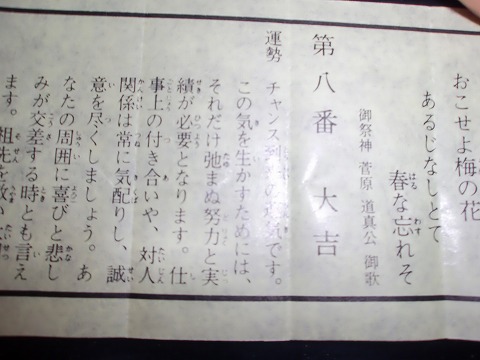 おこせよ梅の花
あるじなしとて
春な忘れそ
御祭神 菅原 道真公 御歌
第八番 大吉
運勢 チャンス到来の運気です。
この気を生かすためには、
それだけ弛まぬ努力と実
績が必要となります。仕
事上の付き合いや、対人
関係は常に気配りし、誠
意を尽くしましょう。あ
なたの周囲に喜びと悲し
みが交差する時とも言え
ます。祖先を敬い